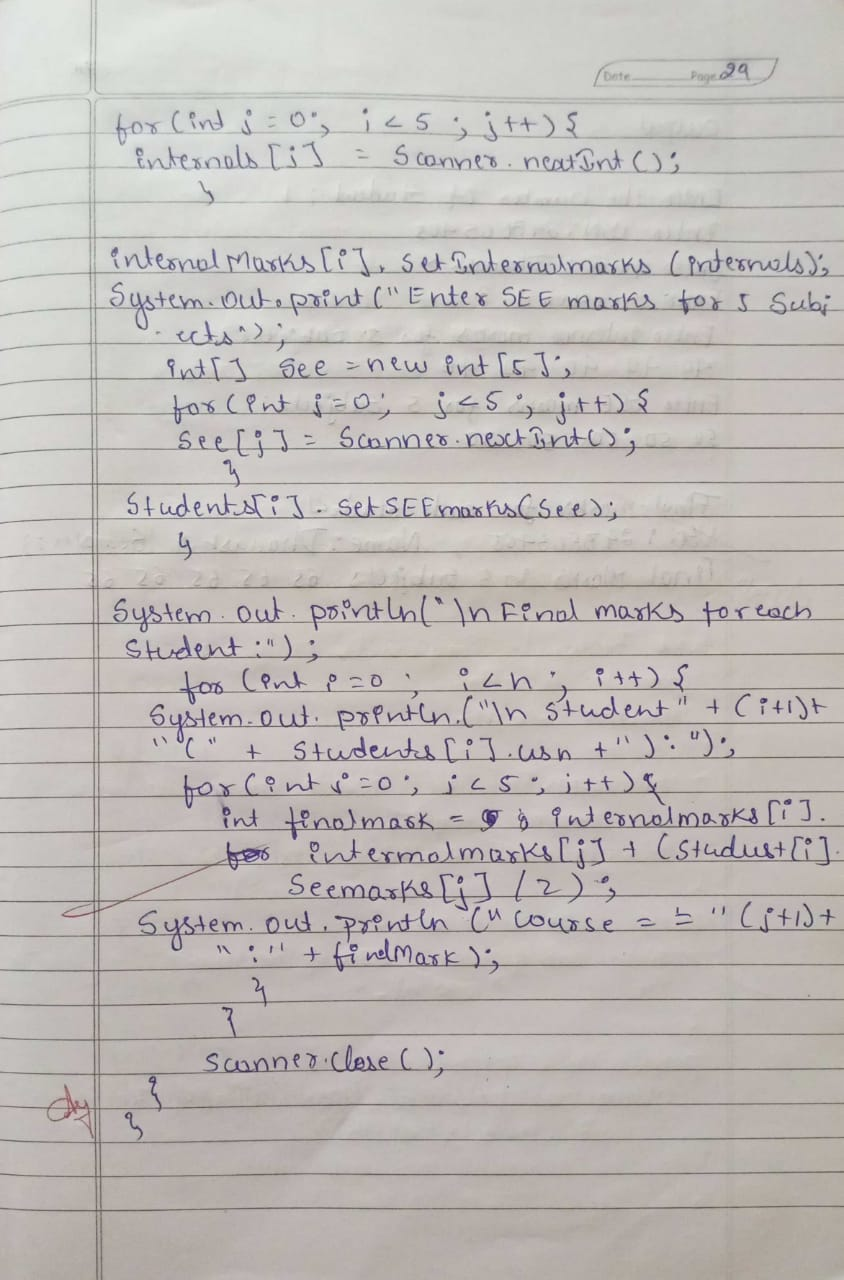 Date Page 29
for (int j = 0; i < 5 ; j++) {
internals [j] = Scanner.nextInt ();
}
internal Marks [i]. Set Internalmarks (internals);
System.out.print ("Enter SEE marks for 5 Subj
ects");
int[] See = new int [5];
for (int j=0; j<5; j++) {
See[j] = Scanner.nextInt();
}
Students[i]. Set SEEmarks(See);
}
System.out.println("\n Final marks for each
Student :");
for (int i=0 ; i<n ; i++) {
System.out.println.("\n Student" + (i+1)+
"(" + Students[i].usn +") : ");
for(int j=0; j<5; j++) {
int finalmark = internalmarks [i].
intermalmarks[j] + (Studust[i].
Seemarks[j] /2) ;
System.out.println (" Course = = " (j+1)+
" : " + finelMark );
}
}
Scanner.Close ();
}
}